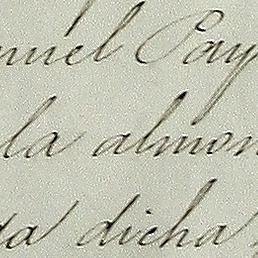 nuel Pay
la almon
da dicha